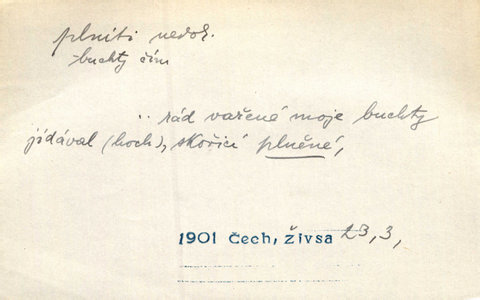 plniti nedok.
buchty čím
.. rád vařené moje buchty
jídával (hoch), skořicí plněné,
1901 Čech, Živsa 23, 3,